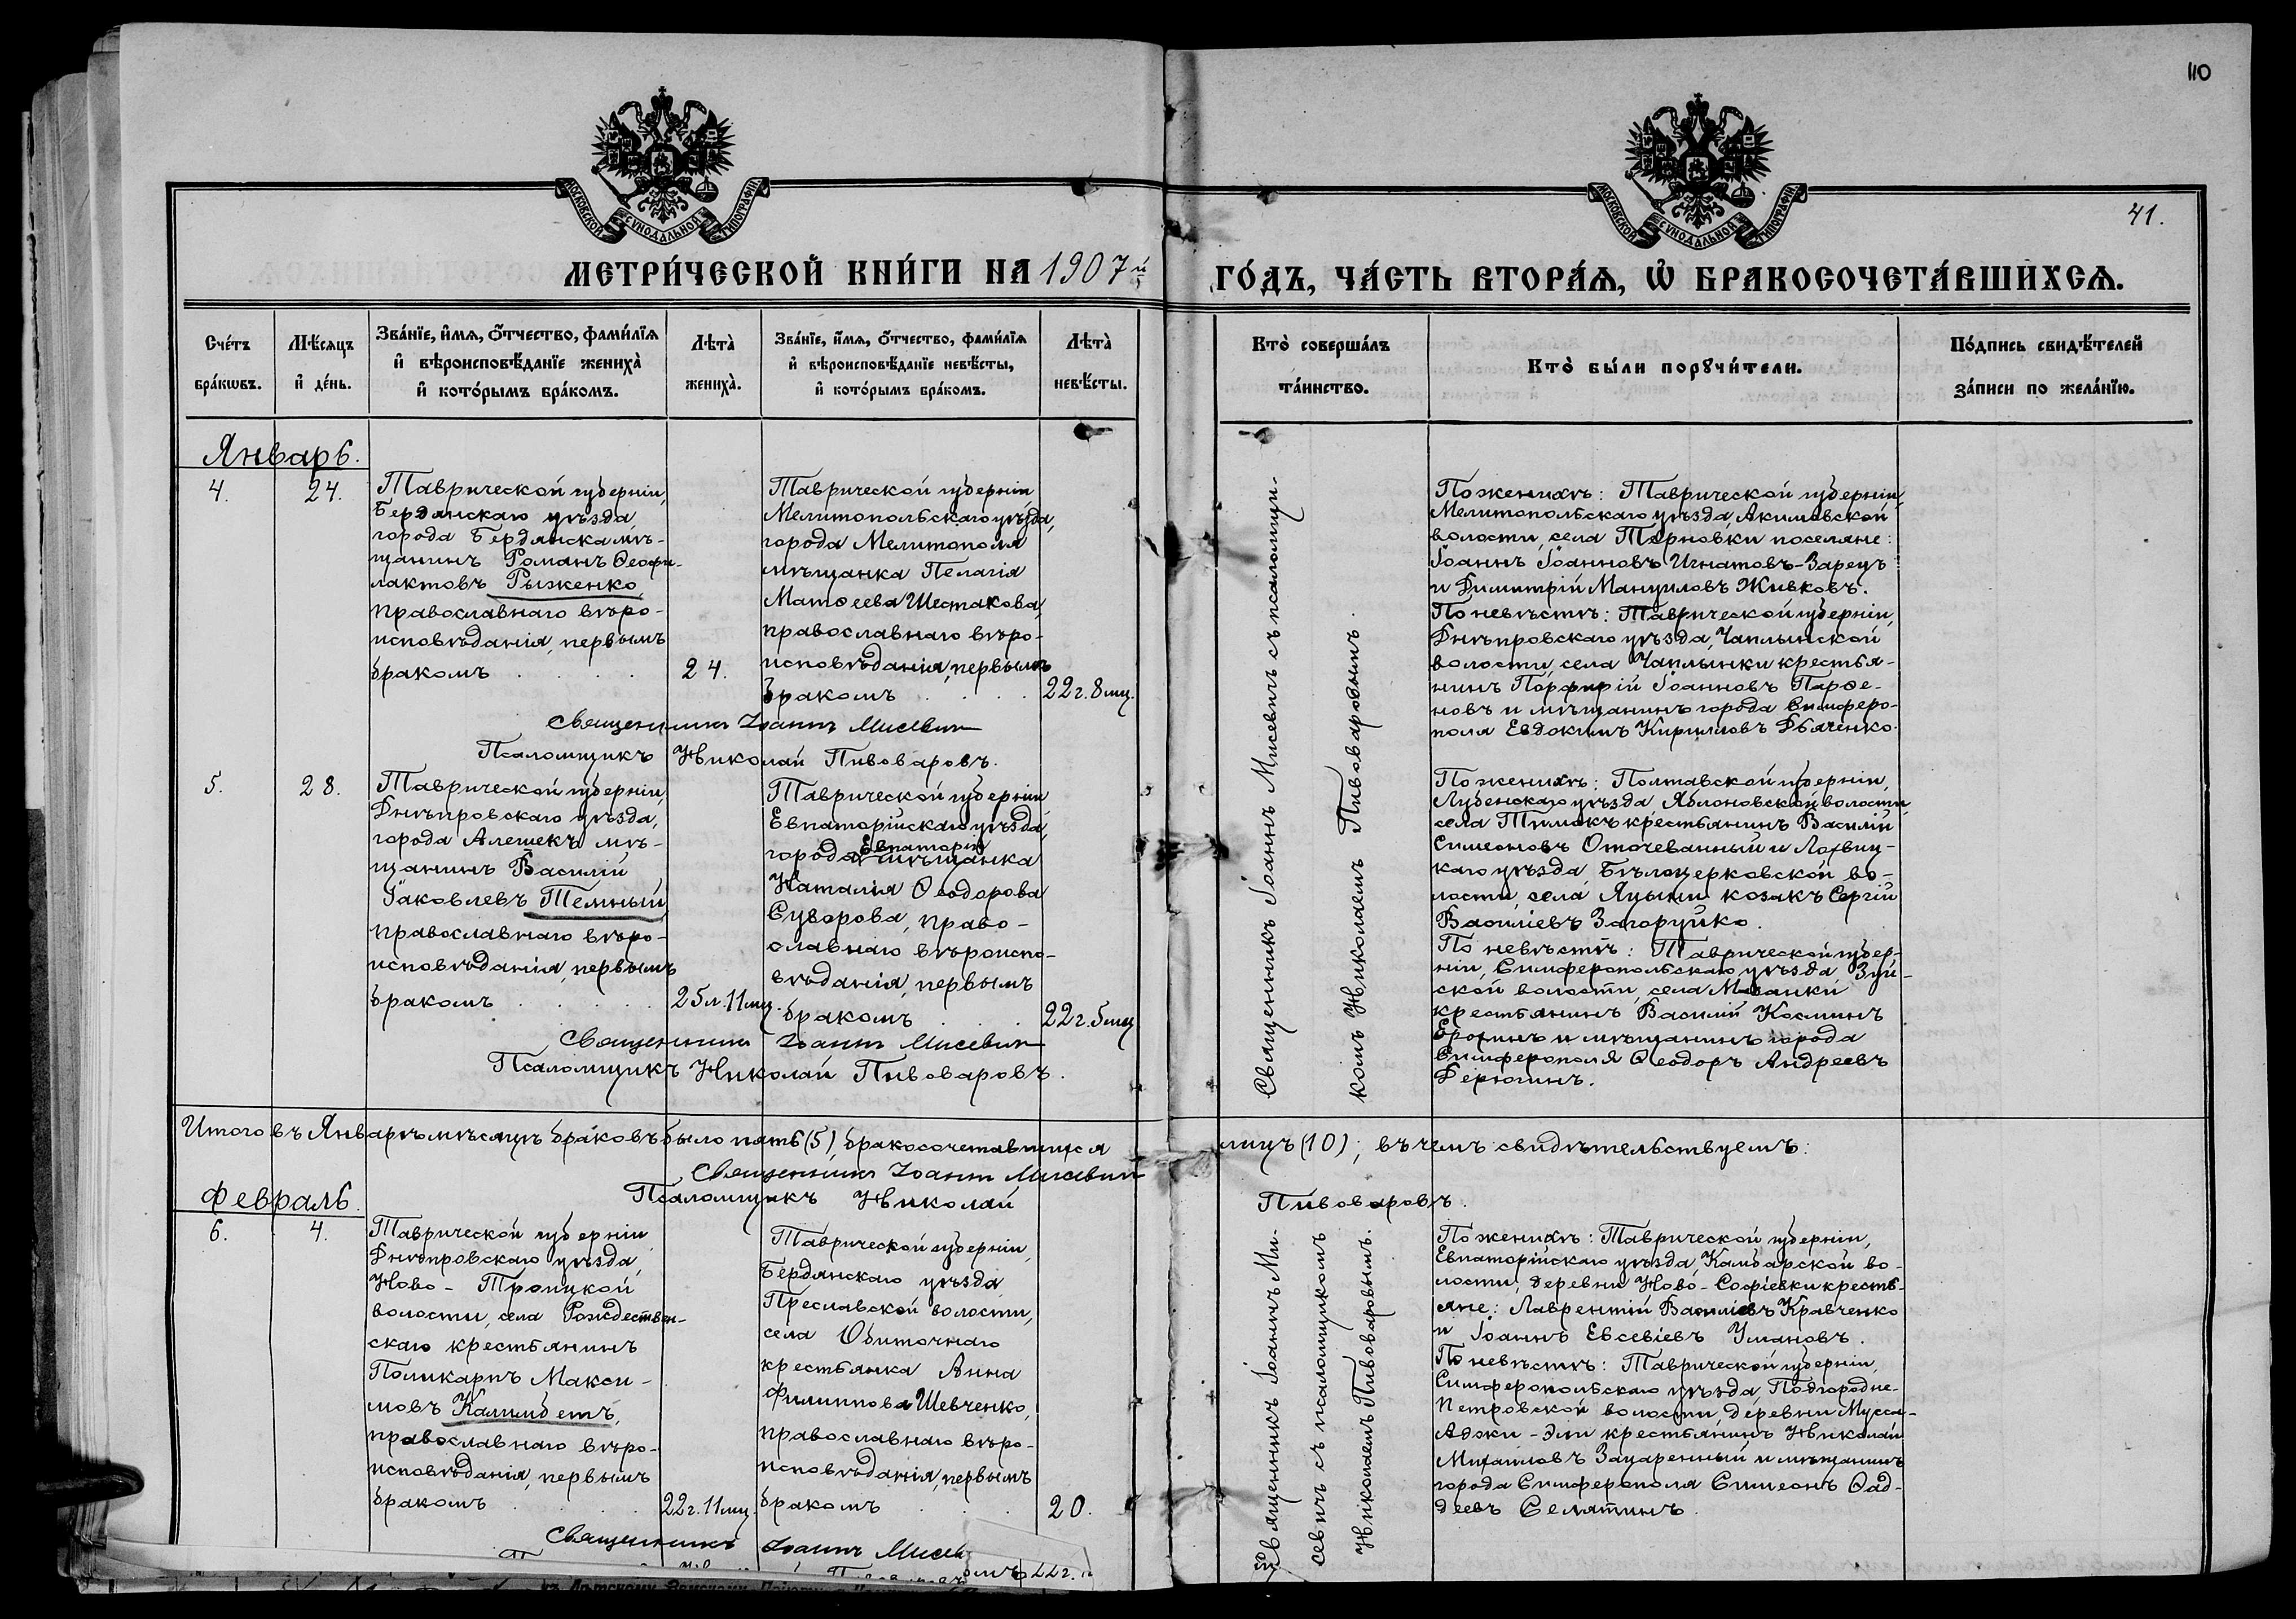 110
МОСКОВСКОЙ СѴНОДАЛЬНОЙ ТИПОГРАФІИ
МОСКОВСКОЙ СѴНОДАЛЬНОЙ ТИПОГРАФІИ
41.
МЕТРИ́ЧЕСКОЙ КНИ́ГИ НА 1907й
ГО́ДЪ, ЧА́СТЬ ВТОРА́Ѧ, Ѡ҆ БРАКОСОЧЕТА́ВШИХСѦ.
Сче́тъ
бра́кѡвъ.
Мѣ́сѧцъ
и҆ де́нь.
Зва́нїе, и҆́мѧ, ѻ҆́тчество, фами́лїѧ
и҆ вѣроисповѣ́данїе жениха̀
и҆ кото́рымъ бра́комъ.
Лѣта̀
жениха̀.
Зва́нїе, и҆́мѧ, ѻ҆́тчество, фами́лїѧ
и҆ вѣроисповѣ́данїе невѣ́сты,
и҆ кото́рымъ бра́комъ.
Лѣта̀
невѣ́сты.
Кто̀ соверша́лъ
та́инство.
Кто̀ бы́ли порꙋчи́тели.
По́дпись свидѣ́телей
за́писи по жела́нїю.
Январь.
4.
24.
Таврической губерніи,
Бердянскаго уѣзда,
города Бердянска мѣ-
щанинъ Романъ Ѳеофи-
лактовъ Рыженко,
православнаго вѣро-
исповѣданія, первымъ
бракомъ . . . .
24.
Таврической губерніи
Мелитопольскаго уѣзда,
города Мелитополя
мѣщанка Пелагія
Матѳеева Шестакова,
православнаго вѣро-
исповѣданія, первымъ
бракомъ . . . .
22г. 8мц.
Священникъ Іоаннъ Мисевичъ съ псаломщи-
комъ Николаемъ Пивоваровымъ.
По женихѣ: Таврической губерніи,
Мелитопольскаго уѣзда, Акимовской
волости, села Терновки поселяне:
Іоаннъ Іоанновъ Игнатовъ-Зарецъ
и Димитрій Мануиловъ Живковъ.
По невѣстѣ: Таврической губерніи,
Днѣпровскаго уѣзда, Чаплынской
волости, села Чаплынки крестья-
нинъ Порфирій Іоанновъ Парѳе-
новъ и мѣщанинъ города Симферо-
поля Евдокимъ Кирилловъ Дьяченко.
Священникъ Іоаннъ Мисевич
Псаломщикъ Николай Пивоваровъ.
5.
28.
Таврической губерніи,
Днѣпровскаго уѣзда,
города Алешекъ мѣ-
щанинъ Василій
Іаковлевъ Темный,
православнаго вѣро-
исповѣданія, первымъ
бракомъ . . . . .
25л. 11мц.
Таврической губерніи
Евпаторійскаго уѣзда,
города Евпаторіи мѣщанка
Наталія Ѳеодорова
Суворова, право-
славнаго вѣроиспо-
вѣданія, первымъ
бракомъ . . .
22г. 5мц
По женихѣ: Полтавской губерніи,
Лубенскаго уѣзда, Яблоновской волости,
села Тимокъ крестьянинъ Василій
Симеоновъ Оточеванный и Лохвиц-
каго уѣзда, Бѣлоцерковской во-
лости, села Яцыны козакъ Сергій
Василіевъ Загоруйко.
По невѣстѣ: Таврической губер-
ніи, Симферопольскаго уѣзда, Зуй-
ской волости, села Мазанки
крестьянинъ Василій Косминъ
Ерохинъ и мѣщанинъ города
Симферополя Ѳеодоръ Андреевъ
Дерюгинъ.
Священникъ Іоаннъ Мисевич
Псаломщикъ Николай Пивоваровъ.
Итого въ Январѣ мѣсяцѣ браковъ было пять (5), бракосочетавшихся
лицъ (10); въ чемъ свидѣтельствуемъ:
Священникъ Іоаннъ Мисевич
Псаломщикъ Николай
Пивоваровъ.
Февраль.
6.
4.
Таврической губерніи,
Днѣпровскаго уѣзда,
Ново-Троицкой
волости, села Рождествен-
скаго крестьянинъ
Поликарпъ Макси-
мовъ Калимбетъ,
православнаго вѣро-
исповѣданія, первымъ
бракомъ . . .
22г. 11мц.
Таврической губерніи,
Бердянскаго уѣзда,
Преславской волости,
села Обиточнаго
крестьянка Анна
Филиппова Шевченко,
православнаго вѣро-
исповѣданія, первымъ
бракомъ . . .
20.
Священникъ Іоаннъ Ми-
севичъ съ псаломщикомъ
Николаемъ Пивоваровымъ.
По женихѣ: Таврической губерніи,
Евпаторійскаго уѣзда, Камбарской во-
лости, деревни Ново-Софіевки кресть-
яне: Лаврентій Василіевъ Кравченко
и Іоаннъ Евсевіевъ Умановъ.
По невѣстѣ: Таврической губерніи,
Симферопольскаго уѣзда, Подгородне-
Петровской волости, деревни Мусса-
Аджи-Эли крестьянинъ Николай
Михаиловъ Зацаренный и мѣщанинъ
города Симферополя Симеонъ Ѳад-
деевъ Селятинъ.
Священникъ Іоаннъ Мисев
омъ 22г.